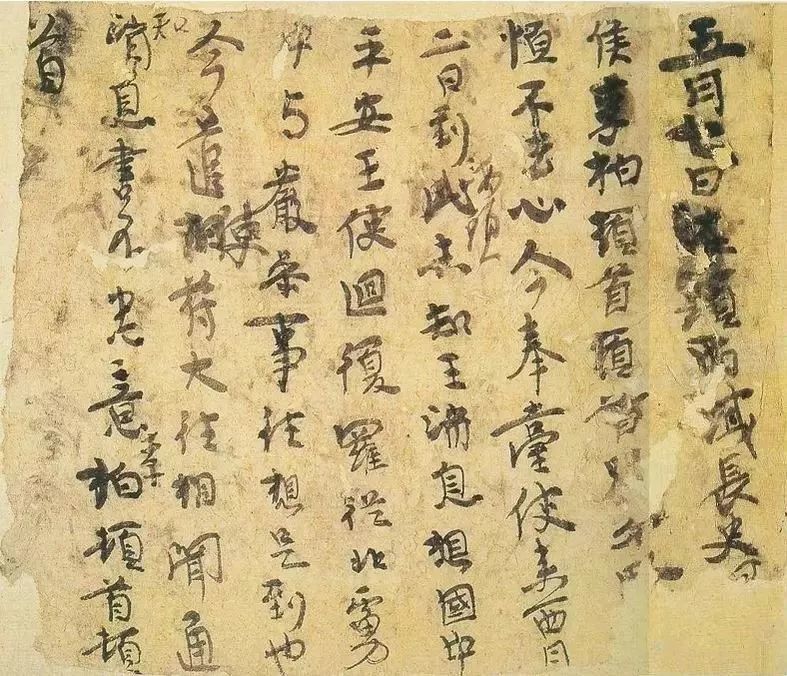 五月七日西域長史
侯李柏頓首頓首別
恒不去心今奉臺使來西月
二日到此海頭未知王消息想國中
平安王使迴復羅從北虜
中与嚴參事往想是到也
今遣使苻大往相聞通
知消息書不悉意李柏頓首頓
首